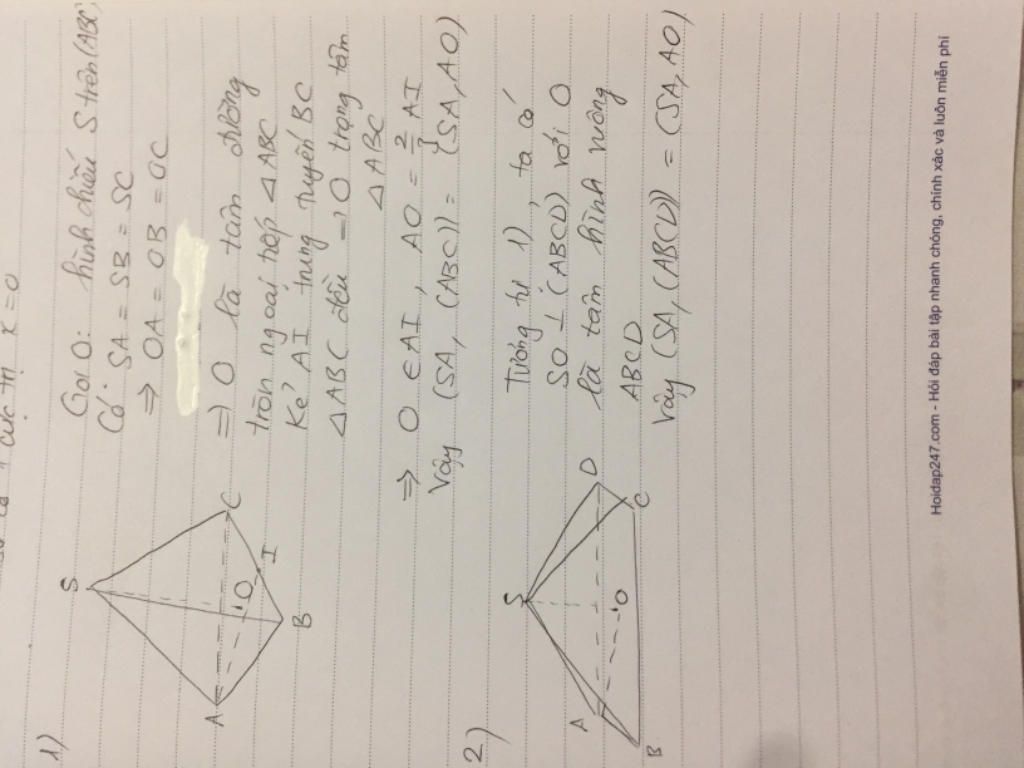 cực trị x = 0
1)
S
A
B
C
O
I
Gọi O: hình chiếu S trên (ABC)
Có SA = SB = SC
⇒ OA = OB = OC
⇒ O là tâm đường
tròn ngoại tiếp △ABC
Kẻ AI trung tuyến BC
△ABC đều → O trọng tâm
△ABC
⇒ O ∈ AI, AO = 2/3 AI
Vậy (SA, (ABC)) = (SA, AO)
2)
S
A
B
C
D
O
Tương tự 1), ta có
SO ⊥ (ABCD) với O
là tâm hình vuông
ABCD
Vậy (SA, (ABCD)) = (SA, AO)
Hoidap247.com - Hỏi đáp bài tập nhanh chóng, chính xác và luôn miễn phí